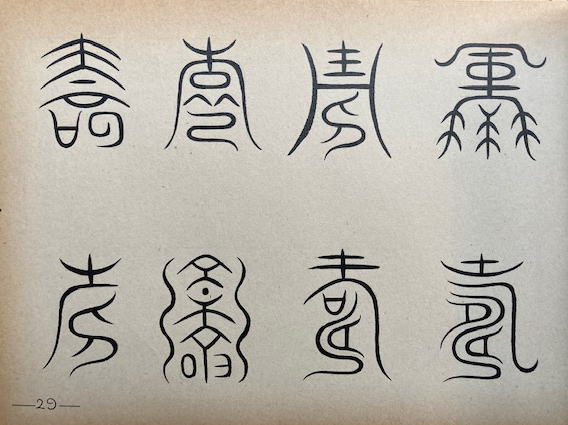 壽壽壽壽
壽壽壽壽
—29—